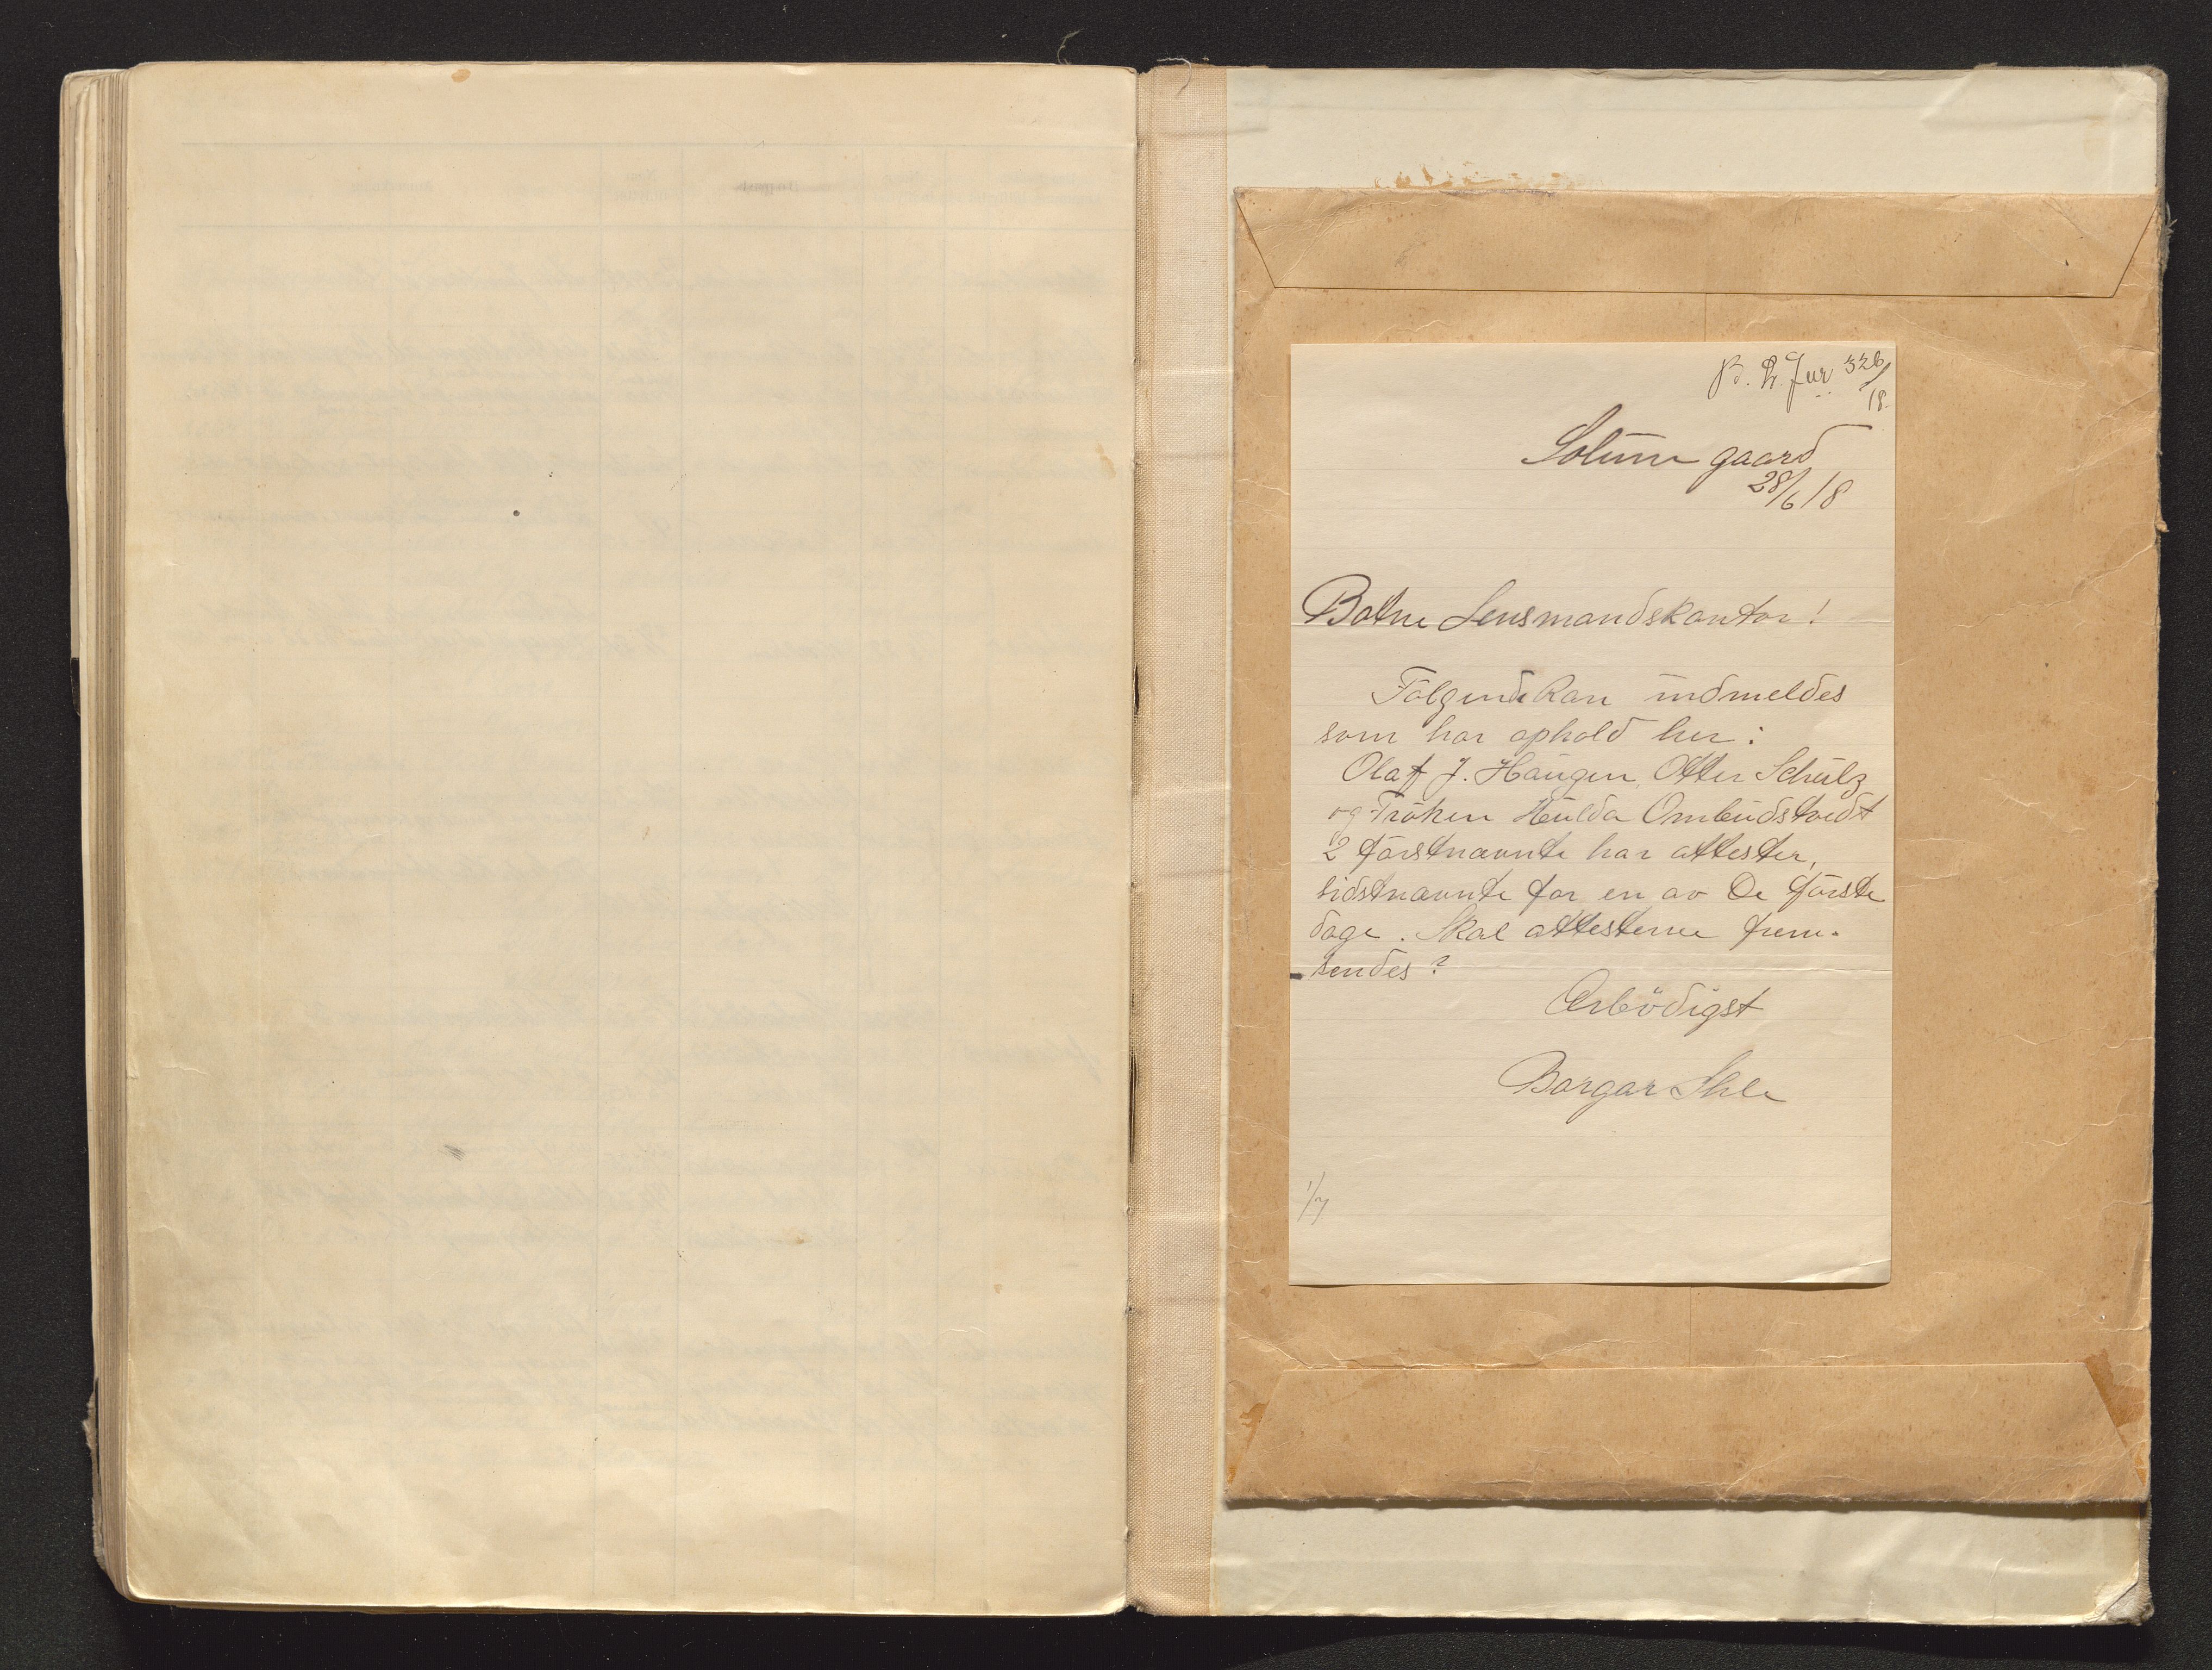 B. L. Jur 326/18.
Solum gaard
28/6 18
Botne Lensmandskontor!
Følgende kan indmeldes
som har ophold her:
Olaf J. Haugen, Otter Schulz
og Frøken Hulda Ombudstvedt
2 førstnævnte har attester,
sidstnævnte før en av de første
dage. Skal attesterne frem-
sendes?
Ærbødigst
Borgar Ihle
1/7